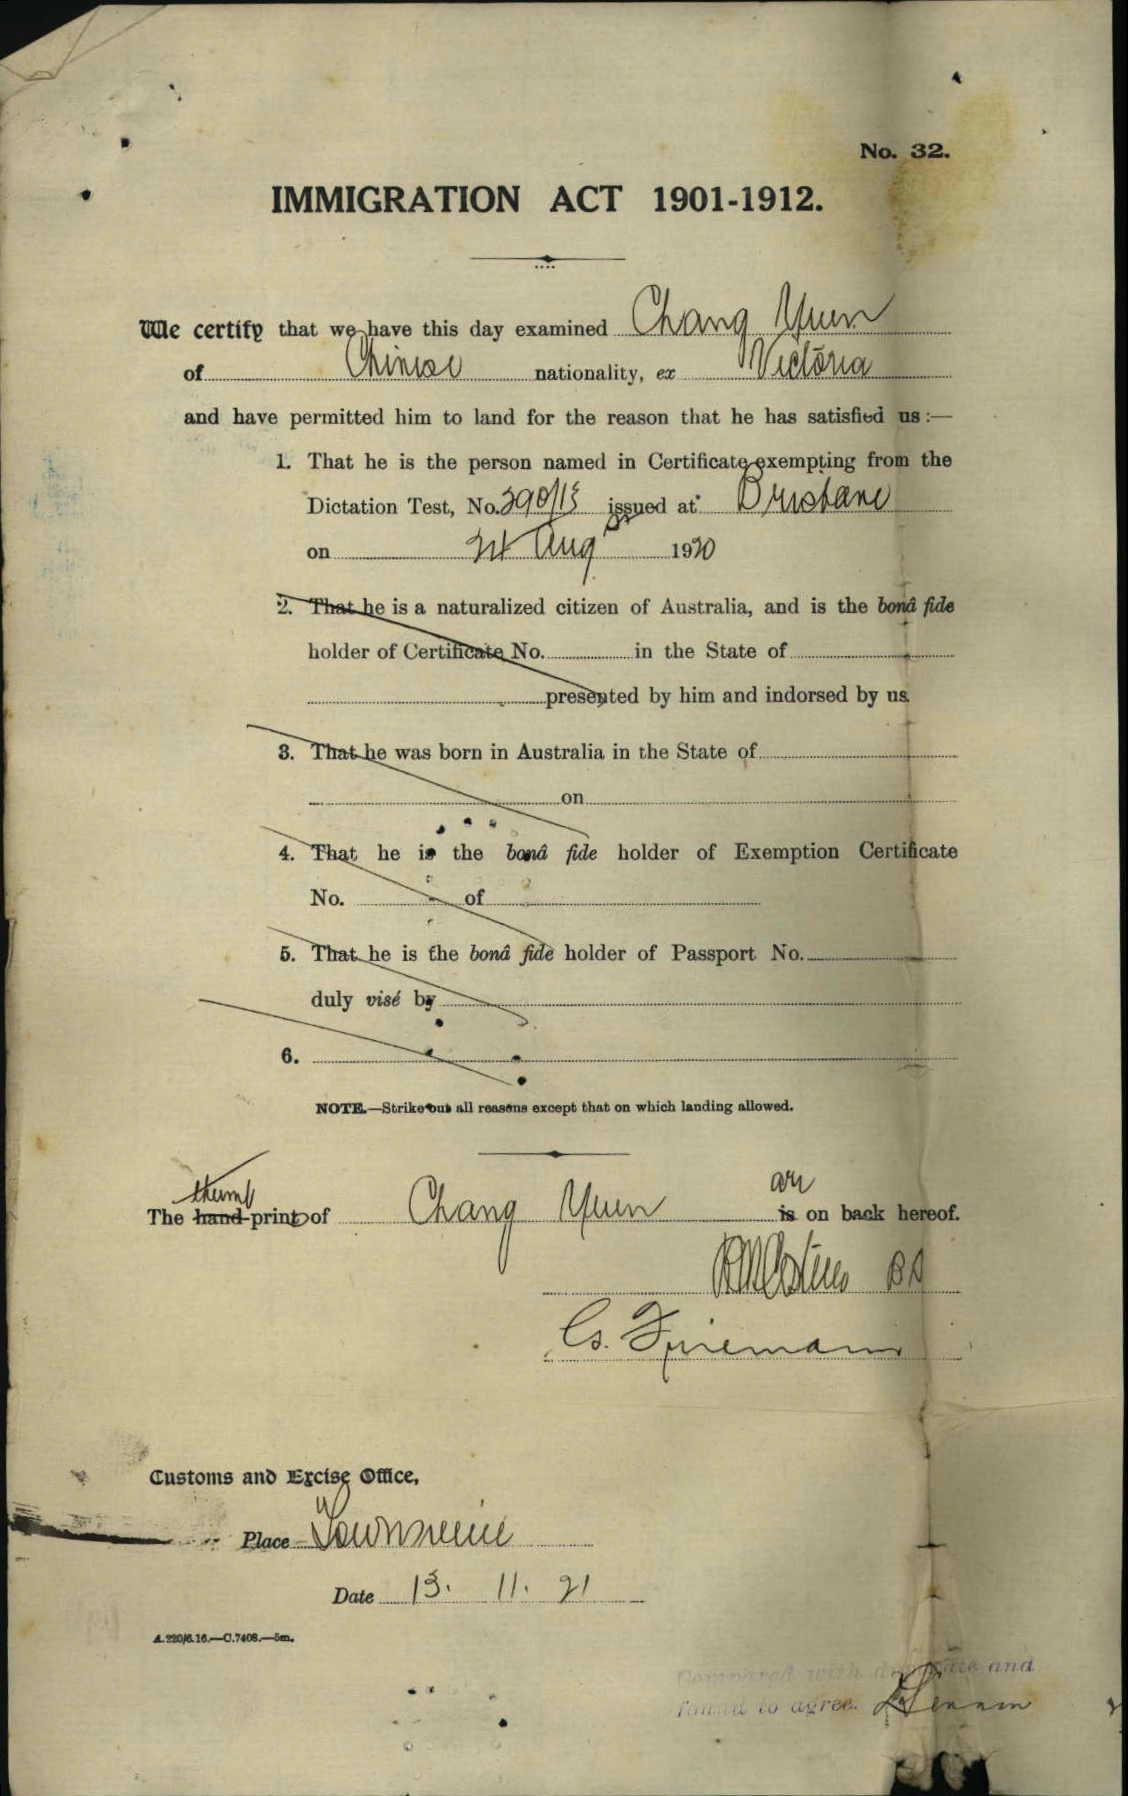 No. 32.
IMMIGRATION ACT 1901-1912.
We certify that we have this day examined Chang Yuen
of Chinese nationality, ex Victoria
and have permitted him to land for the reason that he has satisfied us :—
1. That he is the person named in Certificate exempting from the
Dictation Test, No. 290/13 issued at Brisbane
on Aug 1920
2. That he is a naturalized citizen of Australia, and is the bonâ fide
holder of Certificate No. in the State of
presented by him and indorsed by us.
3. That he was born in Australia in the State of
on
4. That he is the bonâ fide holder of Exemption Certificate
No. of
5. That he is the bonâ fide holder of Passport No.
duly visé by
6.
NOTE.—Strike out all reasons except that on which landing allowed.
thumb are
The hand-print of Chang Yuen is on back hereof.
Customs and Excise Office,
Place Townsville
Date 13. 11. 21
A.220/6.16.—C.7408.—5m.
Compared with duplicate and
found to agree.